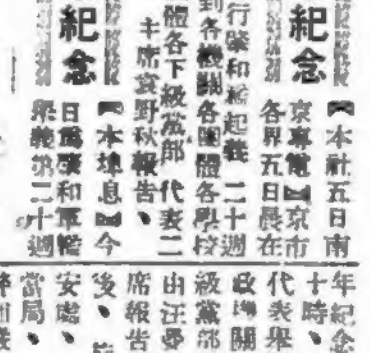 紀念
【本社五日南
京專電】京市
各界五日晨在
行肇和艦起義 二十週
到各機關各團體各學校
體各下級黨部 代表二
主席袁野秋報告、
紀念
【本埠息】今
日爲肇和軍艦
舉義第二十週
年紀念
十時、
代表舉
政機關
級黨部
由汪委
席報告
後、
安處、
當局、